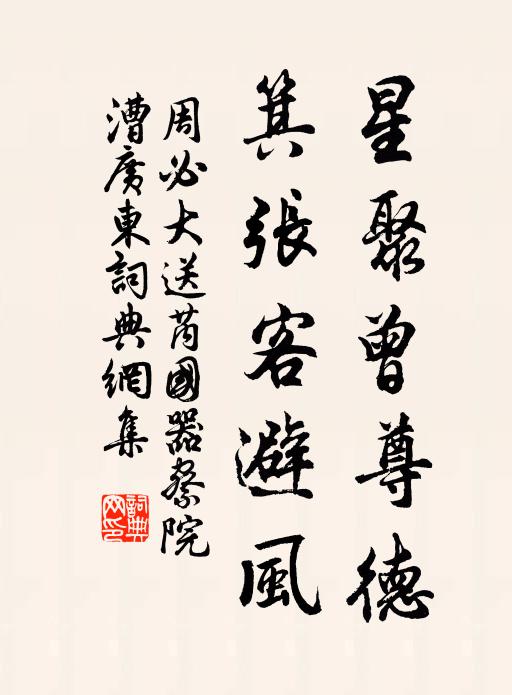 星聚曾尊德
箕張客避風
周必大送芮國器察院
漕廣東詞典網集
詞典
網印